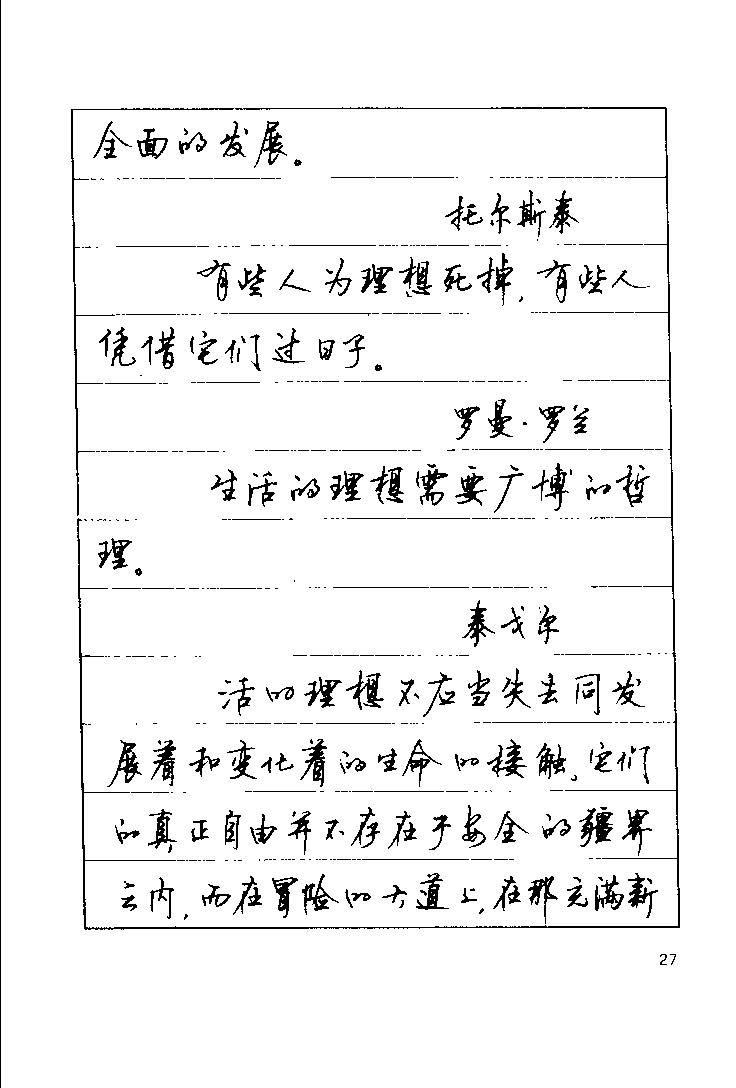 全面的发展。
托尔斯泰
有些人为理想死掉,有些人
凭借它们过日子。
罗曼·罗兰
生活的理想需要广博的哲
理。
泰戈尔
活的理想不应当失去同发
展着和变化着的生命的接触,它们
的真正自由并不存在于安全的疆界
之内,而在冒险的大道上,在那充满新
27